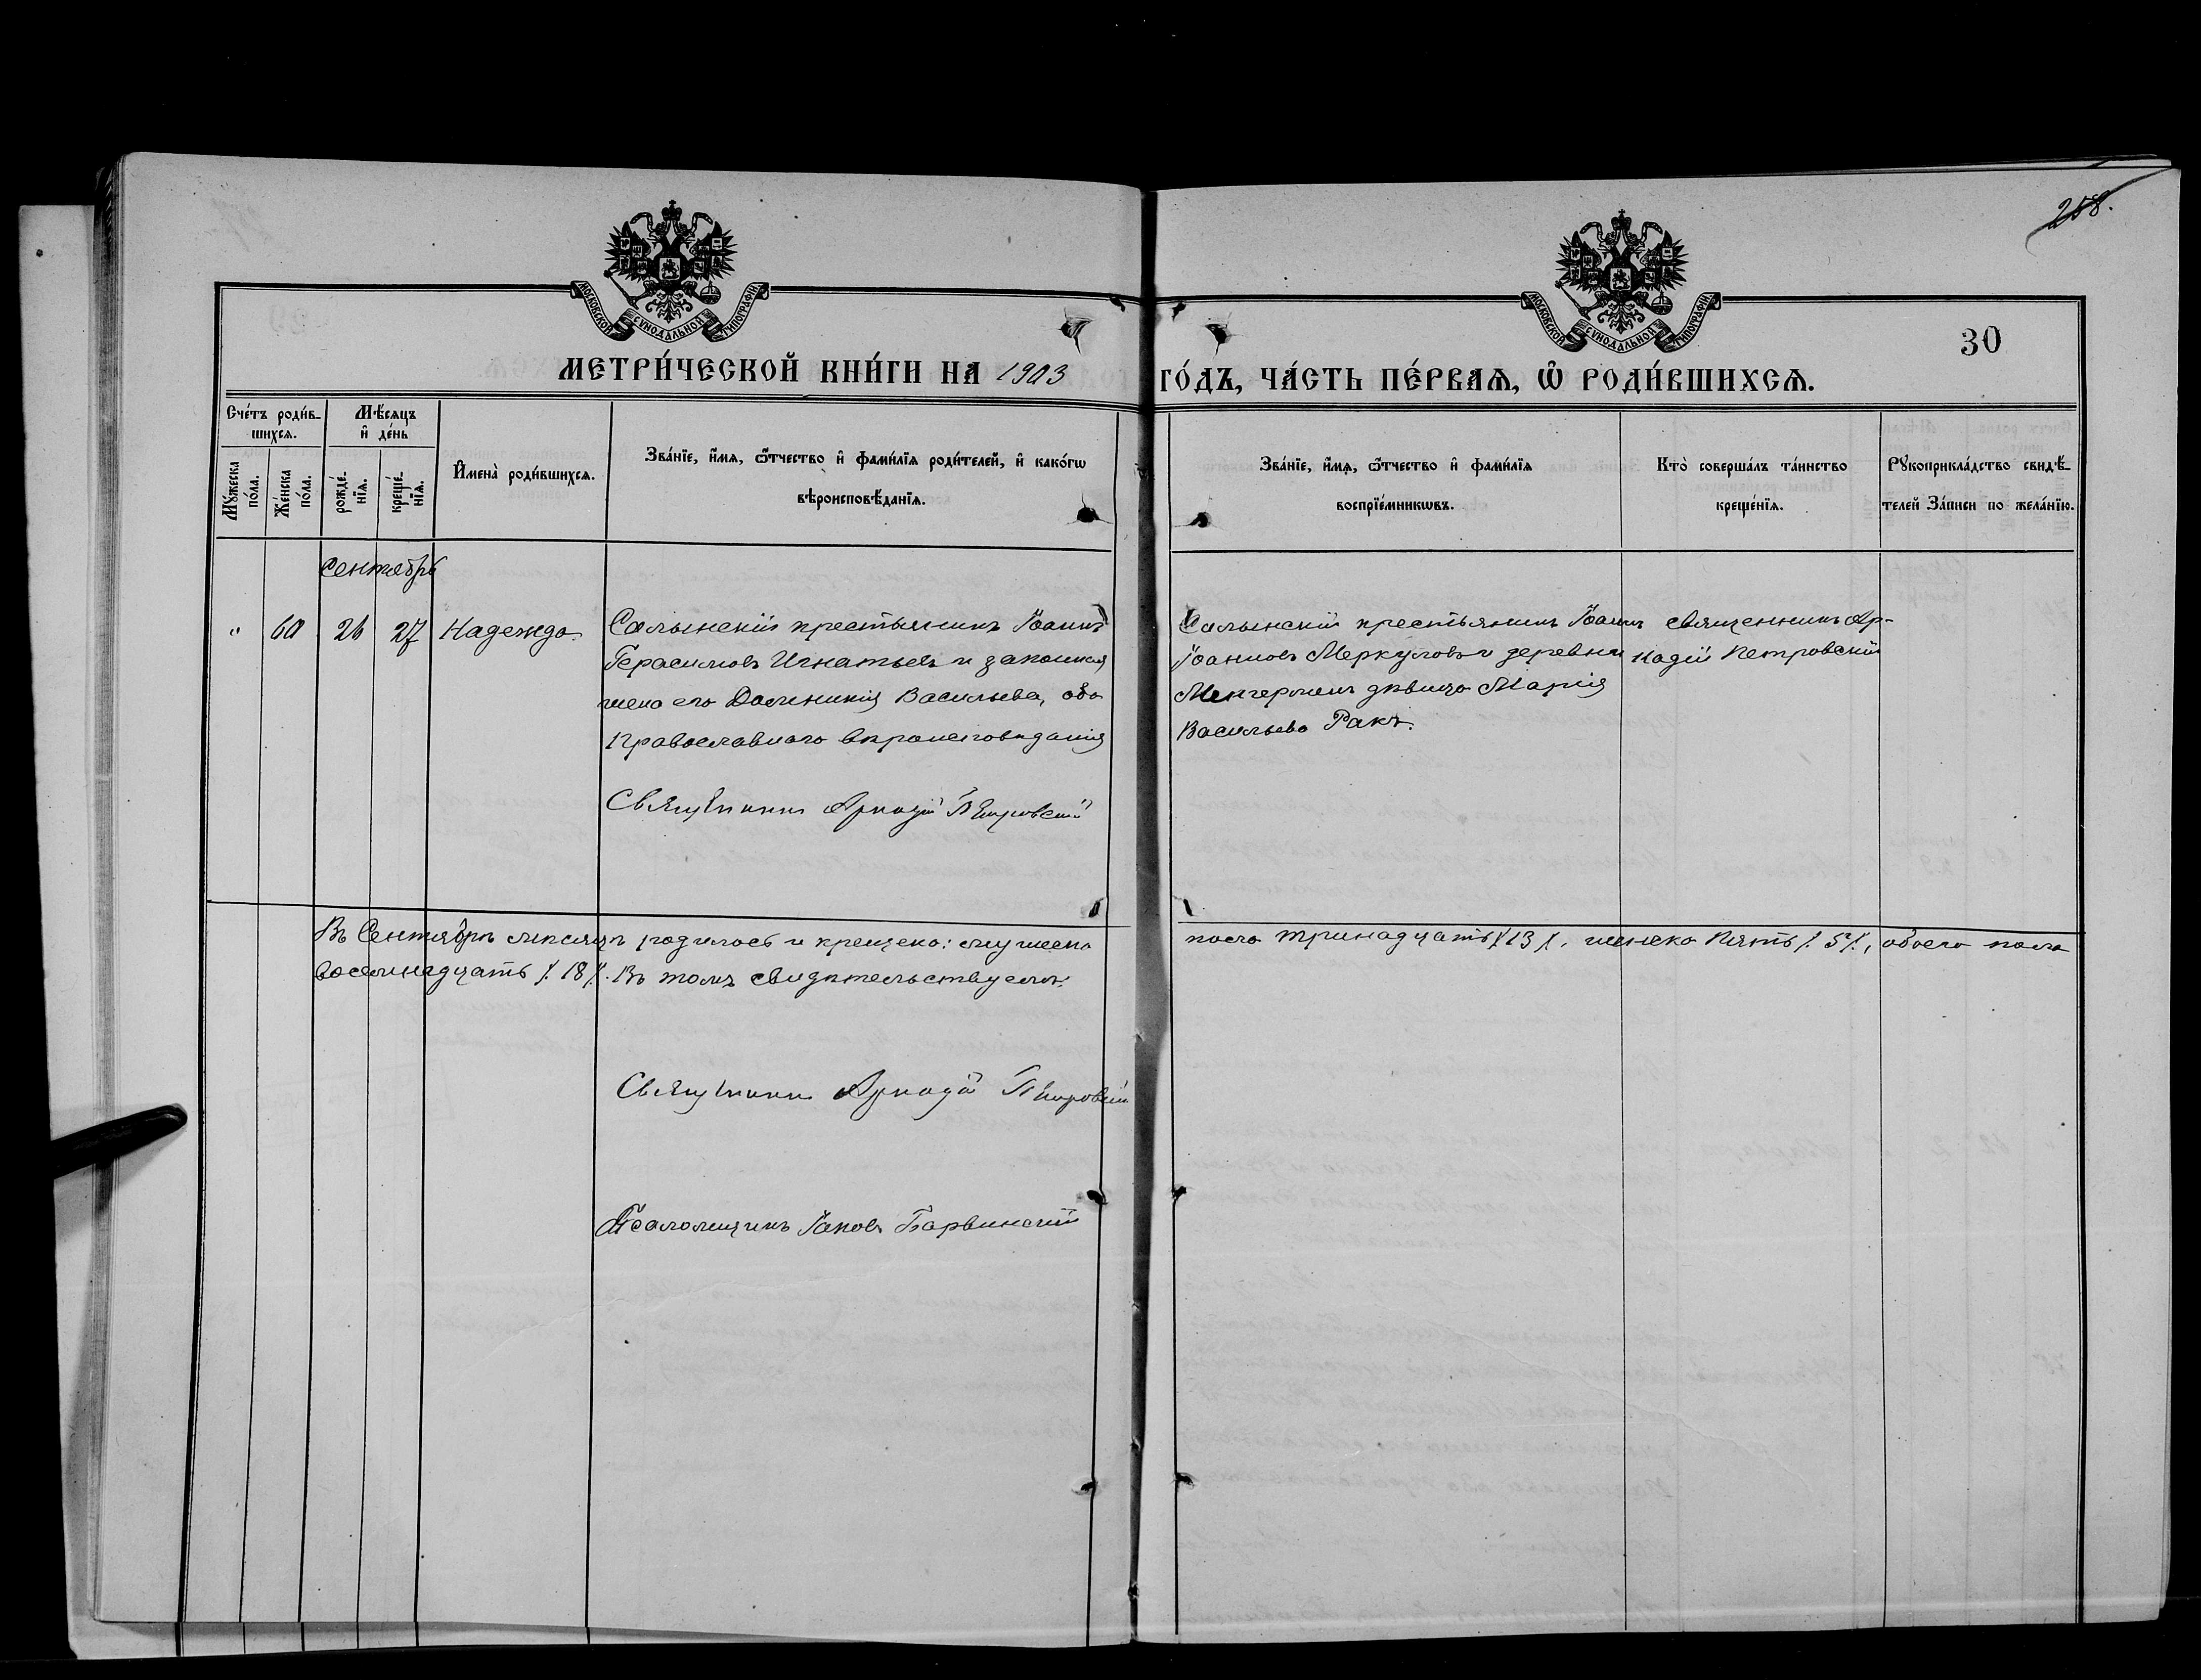 258.
МОСКОВСКОЙ СѴНОДАЛЬНОЙ ТИПОГРАФІИ
МОСКОВСКОЙ СѴНОДАЛЬНОЙ ТИПОГРАФІИ
30
МЕТРИ́ЧЕСКОЙ КНИ́ГИ НА 1903 ГО́ДЪ, ЧА́СТЬ ПЕ́РВАѦ, Ѽ РОДИ́ВШИХСѦ.
Сче́тъ роди́в-
шихсѧ.
Мѣ́сѧцъ
и҆ де́нь
Мꙋ́жеска
по́ла.
Же́нска
по́ла.
рожде́-
нїѧ.
креще́-
нїѧ.
И҆мена̀ роди́вшихсѧ.
Зва́нїе, и҆́мѧ, ѻ҆́тчество и҆ фами́лїѧ роди́телей, и҆ како́гѡ
вѣроисповѣ́данїѧ.
Зва́нїе, и҆́мѧ, ѻ҆́тчество и҆ фами́лїѧ
воспрїе́мникѡвъ.
Кто̀ соверша́лъ та́инство
креще́нїѧ.
Рꙋкоприкла́дство свидѣ́-
телей За́писи по жела́нїю.
Сентябрь
" 60 26 27 Надежда.
Салынскій крестьянинъ Іоаннъ
Герасимовъ Игнатьевъ и законная
жена его Домникія Васильева, оба
Православнаго вѣроисповѣданія
Священникъ Аркадій Петровскій
Салынскій крестьянинъ Іоаннъ
Іоанновъ Меркуловъ и деревни
дѣвица Марія
Васильева Ракъ.
Священникъ Ар-
кадій Петровскій
Въ Сентябрѣ мѣсяцѣ родилось и крещено: мужеска пола тринадцать /. 13 /., женска пять /. 5 /., обоего пола
восемнадцать /. 18 /. Въ томъ свидѣтельствуемъ:
Священникъ Аркадій Петровскій
Псаломщикъ Іаковъ Барвинскій